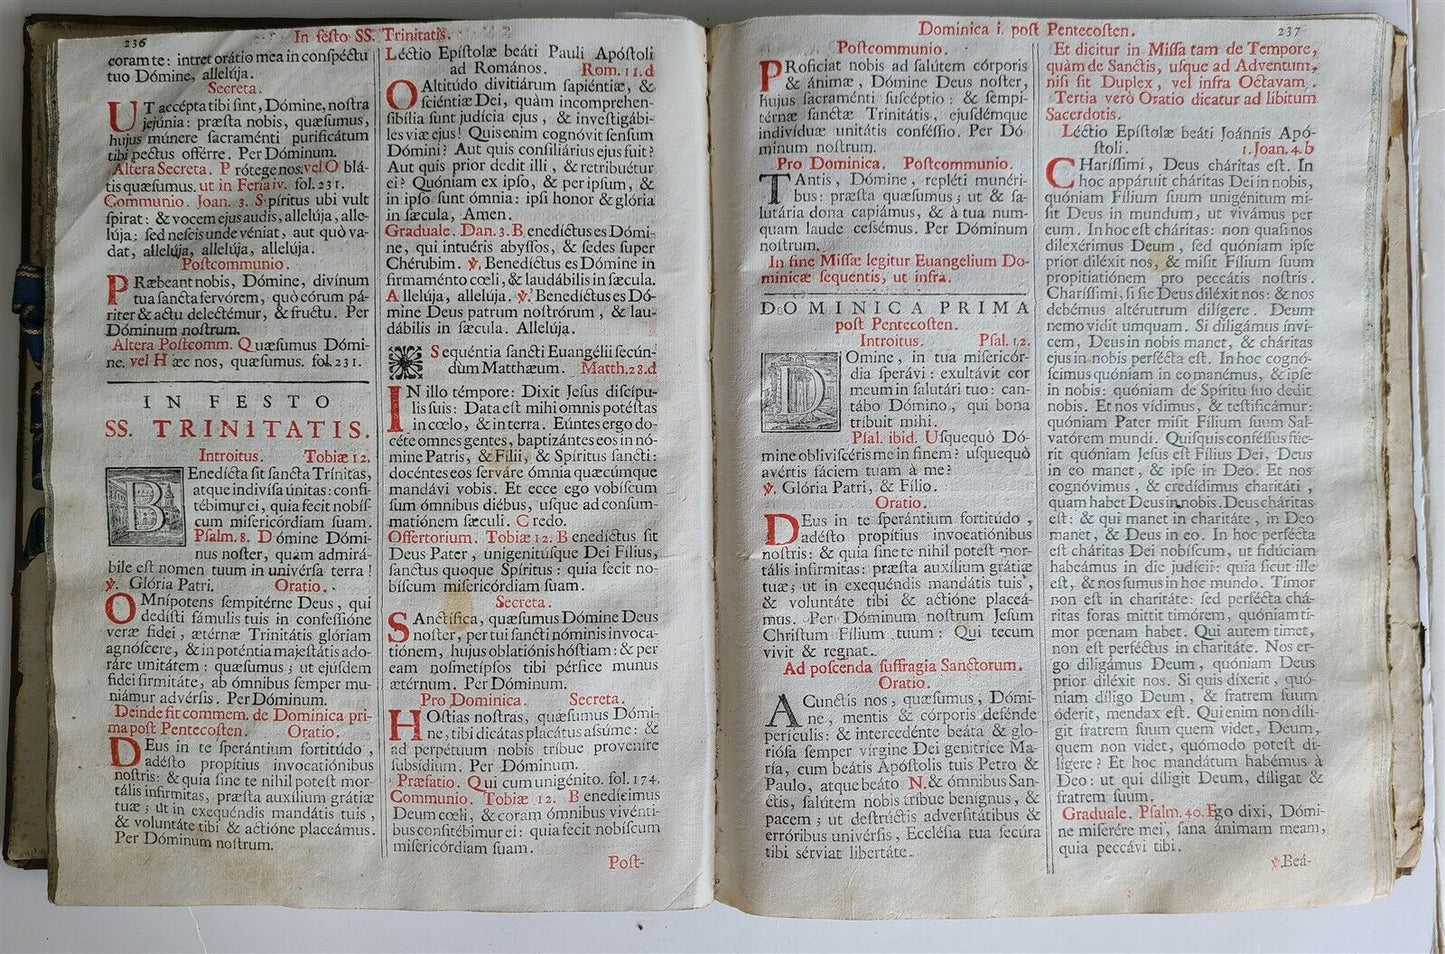 236
In festo SS. Trinitatis.
coram te: intret orátio mea in conspéctu
tuo Dómine, allelúja.
Secreta.
UT accépta tibi sint, Dómine, nostra
jejúnia: præsta nobis, quæsumus,
hujus múnere sacraménti purificátum
tibi pectus offérre. Per Dóminum.
Altera Secreta. Prótege nos. vel O blá-
tis quæsumus. ut in Feria iv. fol. 231.
Communio. Joan. 3. Spíritus ubi vult
spirat: & vocem ejus audis, allelúja, alle-
lúja; sed nescis unde véniat, aut quò va-
dat, allelúja, allelúja, allelúja.
Postcommunio.
PRæbeant nobis, Dómine, divínum
tua sancta fervórem, quò eórum pá-
riter & actu delectémur, & fructu. Per
Dóminum nostrum.
Altera Postcomm. Quæsumus Dómi-
ne. vel Hæc nos, quæsumus. fol. 231.
IN FESTO
SS. TRINITATIS.
Introitus. Tobiæ 12.
BEnedícta sit sancta Trínitas,
atque indivísa únitas: confi-
tébimur ei, quia fecit nobís-
cum misericórdiam suam.
Psalm. 8. Dómine Dómi-
nus noster, quàm admirá-
bile est nomen tuum in univérsa terra!
℣. Glória Patri. Oratio.
OMnípotens sempitérne Deus, qui
dedísti fámulis tuis in confessióne
veræ fidei, ætérnæ Trinitátis glóriam
agnóscere, & in poténtia majestátis ado-
ráre unitátem: quæsumus; ut ejúsdem
fidei firmitáte, ab ómnibus semper mu-
niámur advérsis. Per Dóminum.
Deinde fit commem. de Dominica pri-
ma post Pentecosten. Oratio.
DEus in te sperántium fortitúdo,
adésto propítius invocatiónibus
nostris: & quia sine te nihil potest mor-
tális infírmitas, præsta auxílium grátiæ
tuæ; ut in exequéndis mandátis tuis,
& voluntáte tibi & actióne placeámus.
Per Dóminum nostrum.
Léctio Epístolæ beáti Pauli Apóstoli
ad Romános. Rom. 11. d
O Altitúdo divitiárum sapiéntiæ, &
sciéntiæ Dei, quàm incomprehen-
sibília sunt judícia ejus, & investigábi-
les viæ ejus! Quis enim cognóvit sensum
Dómini? Aut quis consiliárius ejus fuit?
Aut quis prior dedit illi, & retribuétur
ei? Quóniam ex ipso, & per ipsum, &
in ipso sunt ómnia: ipsi honor & glória
in sæcula, Amen.
Graduale. Dan. 3. Benedíctus es Dómi-
ne, qui intuéris abyssos, & sedes super
Chérubim. ℣. Benedíctus es Dómine in
firmaménto cœli, & laudábilis in sæcula.
Allelúja, allelúja. ℣. Benedíctus es Dó-
mine Deus patrum nostrórum, & lau-
dábilis in sæcula. Allelúja.
Sequéntia sancti Euangélii secún-
dùm Matthæum. Matth. 28. d
IN illo témpore: Dixit Jesus discípu-
lis suis: Data est mihi omnis potéstas
in cœlo, & in terra. Eúntes ergo do-
céte omnes gentes, baptizántes eos in nó-
mine Patris, & Fílii, & Spíritus sancti:
docéntes eos serváre ómnia quæcúmque
mandávi vobis. Et ecce ego vobíscum
sum ómnibus diébus, usque ad consum-
matiónem sæculi. Credo.
Offertorium. Tobiæ 12. Benedíctus sit
Deus Pater, unigenitúsque Dei Fílius,
sanctus quoque Spíritus: quia fecit no-
bíscum misericórdiam suam.
Secreta.
SAnctífica, quæsumus Dómine Deus
noster, per tui sancti nóminis invoca-
tiónem, hujus oblatiónis hóstiam: & per
eam nosmetípsos tibi pérfice munus
ætérnum. Per Dóminum.
Pro Dominica. Secreta.
HOstias nostras, quæsumus Dómi-
ne, tibi dicátas placátus assúme: &
ad perpétuum nobis tríbue proveníre
subsídium. Per Dóminum.
Præfatio. Qui cum unigénito. fol. 174.
Communio. Tobiæ 12. Benedícimus
Deum cœli, & coram ómnibus vivénti-
bus confitébimur ei: quia fecit nobíscum
misericórdiam suam.
Post-
Dominica i. post Pentecosten.
237
Postcommunio.
PRoficiat nobis ad salútem córporis
& ánimæ, Dómine Deus noster,
hujus sacraménti suscéptio: & sempi-
térnæ sanctæ Trinitátis, ejusdémque
indivíduæ unitátis conféssio. Per Dó-
minum nostrum.
Pro Dominica. Postcommunio.
TAntis, Dómine, repléti munéri-
bus: præsta quæsumus; ut & sa-
lutária dona capiámus, & à tua num-
quam laude cessémus. Per Dóminum
nostrum.
In fine Missæ legitur Euangelium Do-
minicæ sequentis, ut infra.
DOMINICA PRIMA
post Pentecosten.
Introitus. Psal. 12.
DOmine, in tua misericór-
dia sperávi: exultávit cor
meum in salutári tuo: can-
tábo Dómino, qui bona
tríbuit mihi.
Psal. ibid. Usquequò Dó-
mine obliviscéris me in finem? usquequò
avértis fáciem tuam à me?
℣. Glória Patri, & Filio.
Oratio.
DEus in te sperántium fortitúdo,
adésto propítius invocatiónibus
nostris: & quia sine te nihil potest mor-
tális infírmitas: præsta auxílium grátiæ
tuæ; ut in exequéndis mandátis tuis,
& voluntáte tibi & actióne placeá-
mus. Per Dóminum nostrum Jesum
Christum Fílium tuum: Qui tecum
vivit & regnat.
Ad poscenda suffragia Sanctorum.
Oratio.
A Cunctis nos, quæsumus, Dómi-
ne, mentis & córporis defénde
perículis: & intercedénte beáta & glo-
riósa semper vírgine Dei genitríce Ma-
ría, cum beátis Apóstolis tuis Petro &
Paulo, atque beáto N. & ómnibus San-
ctis, salútem nobis tríbue benígnus, &
pacem; ut destrúctis adversitátibus &
erróribus univérsis, Ecclésia tua secúra
tibi sérviat libertáte.
Et dicitur in Missa tam de Tempore,
quàm de Sanctis, usque ad Adventum,
nisi sit Duplex, vel infra Octavam.
Tertia verò Oratio dicatur ad libitum
Sacerdotis.
Léctio Epístolæ beáti Joánnis Apó-
stoli. 1. Joan. 4. b
CHaríssimi, Deus cháritas est. In
hoc appáruit cháritas Dei in nobis,
quóniam Fílium suum unigénitum mi-
sit Deus in mundum, ut vivámus per
eum. In hoc est cháritas: non quasi nos
dilexérimus Deum, sed quóniam ipse
prior diléxit nos, & misit Fílium suum
propitiatiónem pro peccátis nostris.
Charíssimi, si sic Deus diléxit nos: & nos
debémus altérutrum dilígere. Deum
nemo vidit umquam. Si diligámus ínvi-
cem, Deus in nobis manet, & cháritas
ejus in nobis perfécta est. In hoc cognó-
scimus quóniam in eo manémus, & ipse
in nobis: quóniam de Spíritu suo dedit
nobis. Et nos vídimus, & testificámur:
quóniam Pater misit Fílium suum Sal-
vatórem mundi. Quisquis conféssus fúe-
rit quóniam Jesus est Fílius Dei, Deus
in eo manet, & ipse in Deo. Et nos
cognóvimus, & credídimus charitáti,
quam habet Deus in nobis. Deus cháritas
est: & qui manet in charitáte, in Deo
manet, & Deus in eo. In hoc perfécta
est cháritas Dei nobíscum, ut fidúciam
habeámus in die judícii: quia sicut ille
est, & nos sumus in hoc mundo. Timor
non est in charitáte: sed perfécta chá-
ritas foras mittit timórem, quóniam ti-
mor pœnam habet. Qui autem timet,
non est perféctus in charitáte. Nos er-
go diligámus Deum, quóniam Deus
prior diléxit nos. Si quis díxerit, quó-
niam díligo Deum, & fratrem suum
óderit, mendax est. Qui enim non díli-
git fratrem suum quem videt, Deum,
quem non videt, quómodo potest di-
lígere? Et hoc mandátum habémus à
Deo: ut qui díligit Deum, díligat &
fratrem suum.
Graduale. Psalm. 40. Ego dixi, Dómi-
ne miserére mei, sana ánimam meam,
quia peccávi tibi.
℣ Beá-